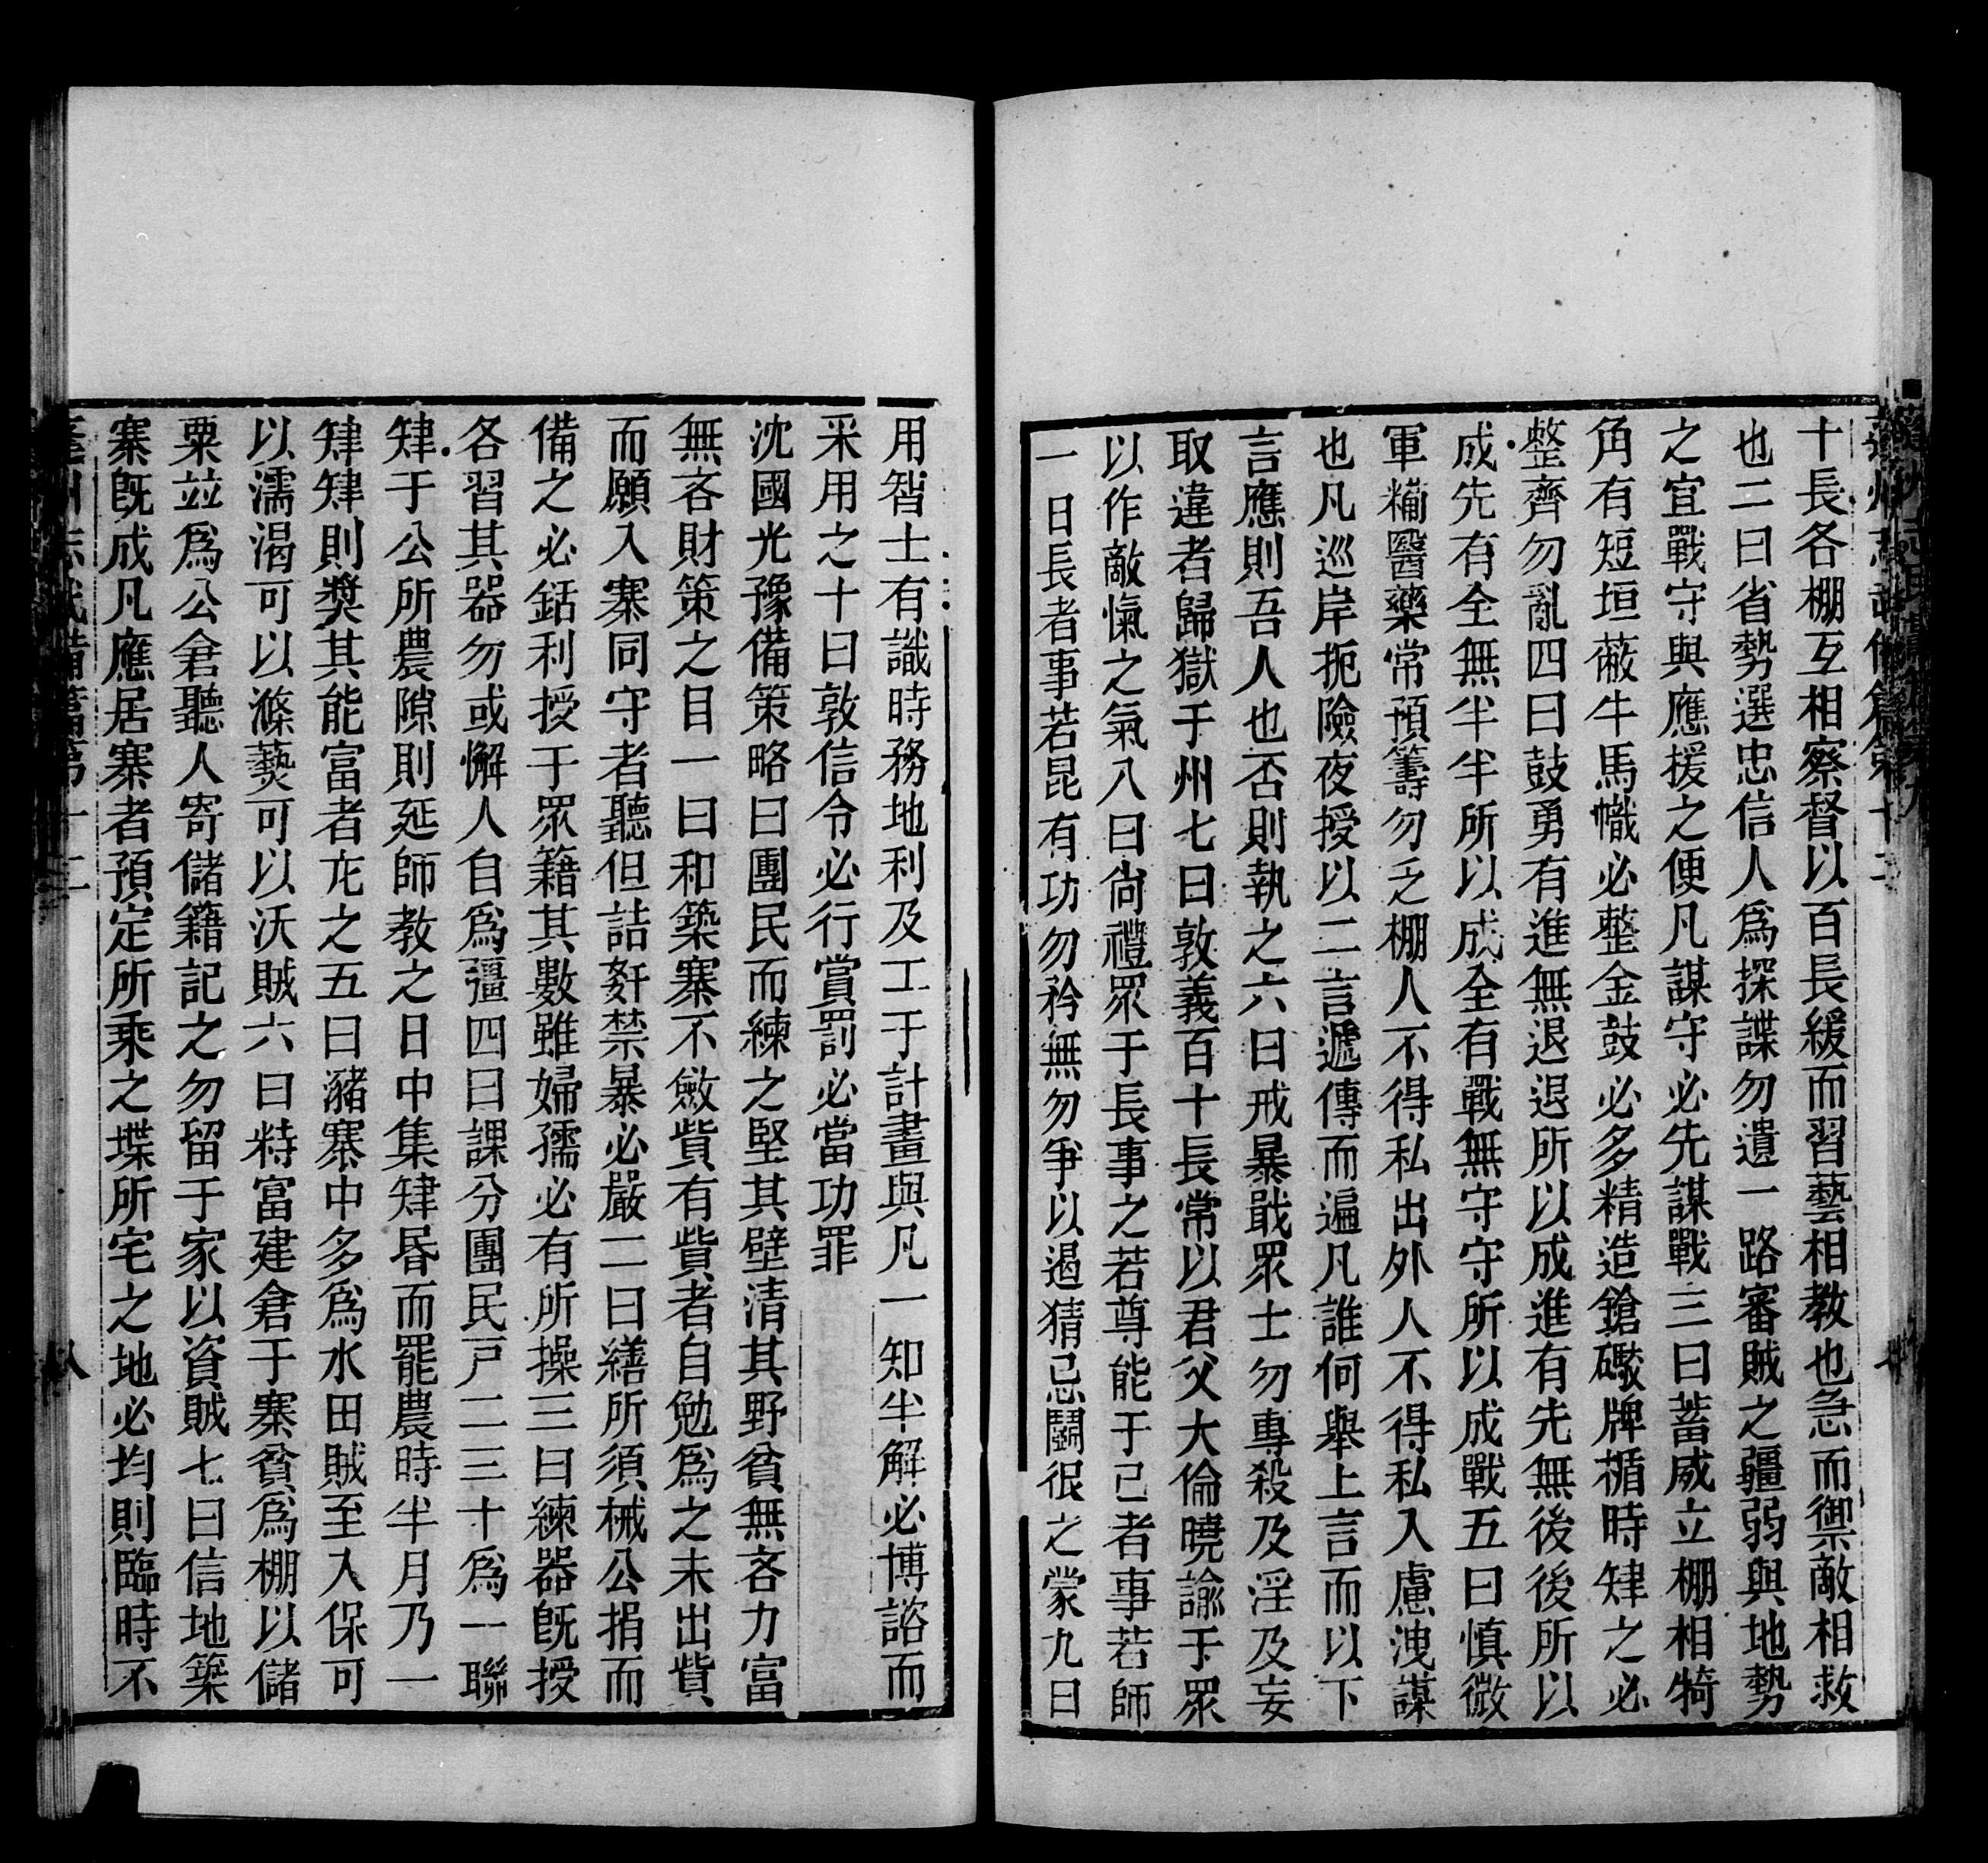 十長各棚互相察督以百長緩而習藝相教也急而禦敵相救
也二曰省勢選忠信人爲探諜勿遺一路審賊之疆弱與地勢
之宜戰守與應援之便凡謀守必先謀戰三曰蓄威立棚相犄
角有短垣蔽牛馬幟必整金鼓必多精造鎗礮牌楯時肄之必
整齊勿亂四曰鼓勇有進無退退所以成進有先無後後所以
成先有全無半半所以成全有戰無守守所以成戰五曰慎微
軍糒醫藥常預籌勿乏棚人不得私出外人不得私入慮洩謀
也凡巡岸扼險夜授以二言遞傳而遍凡誰何舉上言而以下
言應則吾人也否則執之六曰戒暴戢眾士勿專殺及淫及妄
取違者歸獄于州七曰敦義百十長常以君父大倫曉諭于眾
以作敵愾之氣八曰尙禮眾于長事之若尊能于己者事若師
一日長者事若昆有功勿矜無勿爭以遏猜忌鬭很之蒙九曰
用智士有識時務地利及工于計畫與凡一知半解必博諮而
采用之十曰敦信令必行賞罰必當功罪
沈國光豫備策略曰團民而練之堅其壁清其野貧無吝力富
無吝財策之目一曰和築寨不斂貲有貲者自勉爲之未出貲
而願入寨同守者聽但詰姦禁暴必嚴二曰繕所須械公捐而
備之必銛利授于眾籍其數雖婦孺必有所操三曰練器旣授
各習其器勿或懈人自爲彊四曰課分團民戸二三十爲一聯
肄于公所農隙則延師教之日中集肄昬而罷農時半月乃一
肄肄則獎其能富者尨之五曰瀦寨中多爲水田賊至入保可
以濡渴可以滌爇可以沃賊六曰㭙富建倉于寨貧爲棚以儲
粟並爲公倉聽人寄儲籍記之勿留于家以資賊七曰信地築
寨旣成凡應居寨者預定所乘之堞所宅之地必均則臨時不